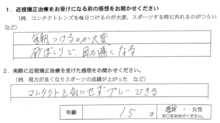 1. 近視矯正治療をお受けになる前の感想をお聞かせください
（例、コンタクトレンズを毎日つけるのが大変、スポーツする時に外れるのがつらいなど）
毎朝つけるのが大変
砂ぼこりで目が痛くなる
2. 実際に近視矯正治療を受けた感想をお聞かせください
（例、視力が良くなりスポーツの成績が上がった など）
コンタクトを気にせずプレーできる
年齢 15 才 男・女性